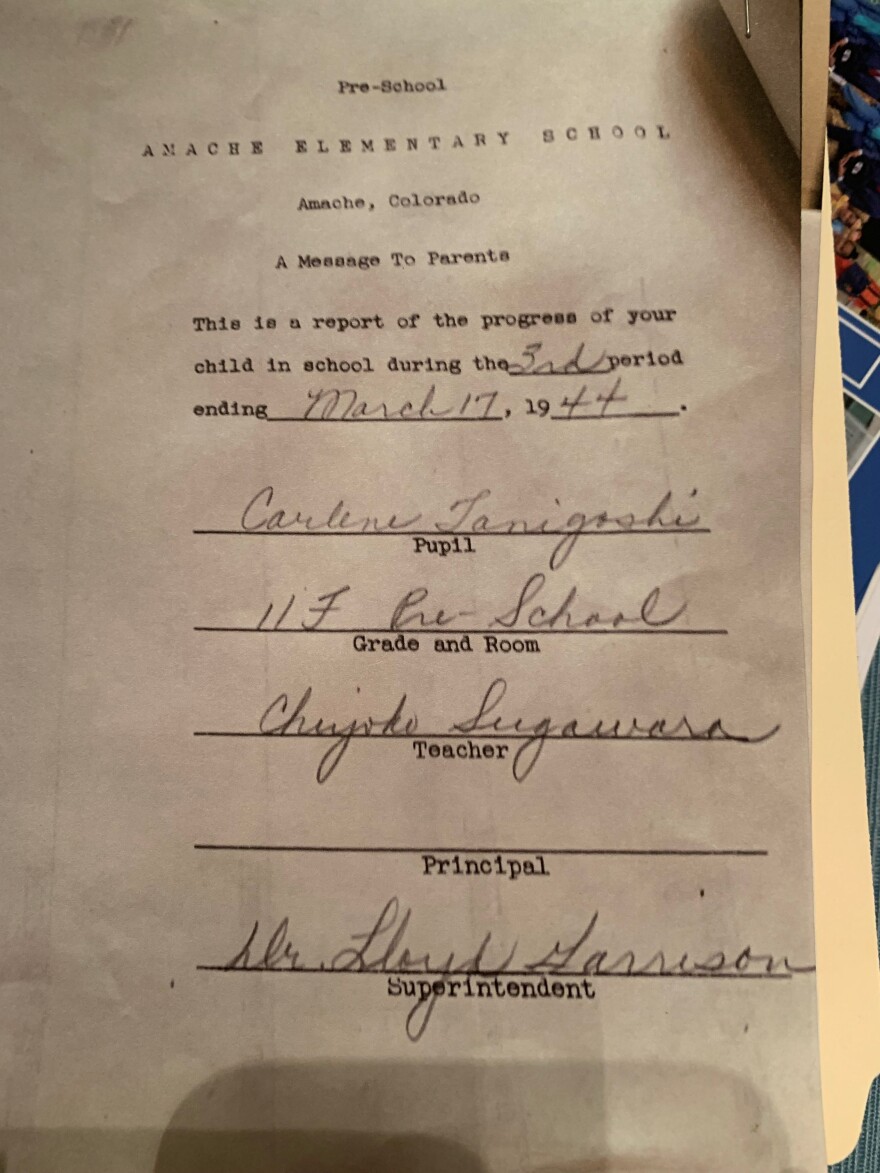 Pre-School
AMACHE ELEMENTARY SCHOOL
Amache, Colorado
A Message To Parents
This is a report of the progress of your
child in school during the 3rd period
ending March 17, 1944.
Carlene Tanigoshi
Pupil
11F Pre-School
Grade and Room
Chiyoko Sugawara
Teacher
Principal
Dr. Lloyd Garrison
Superintendent